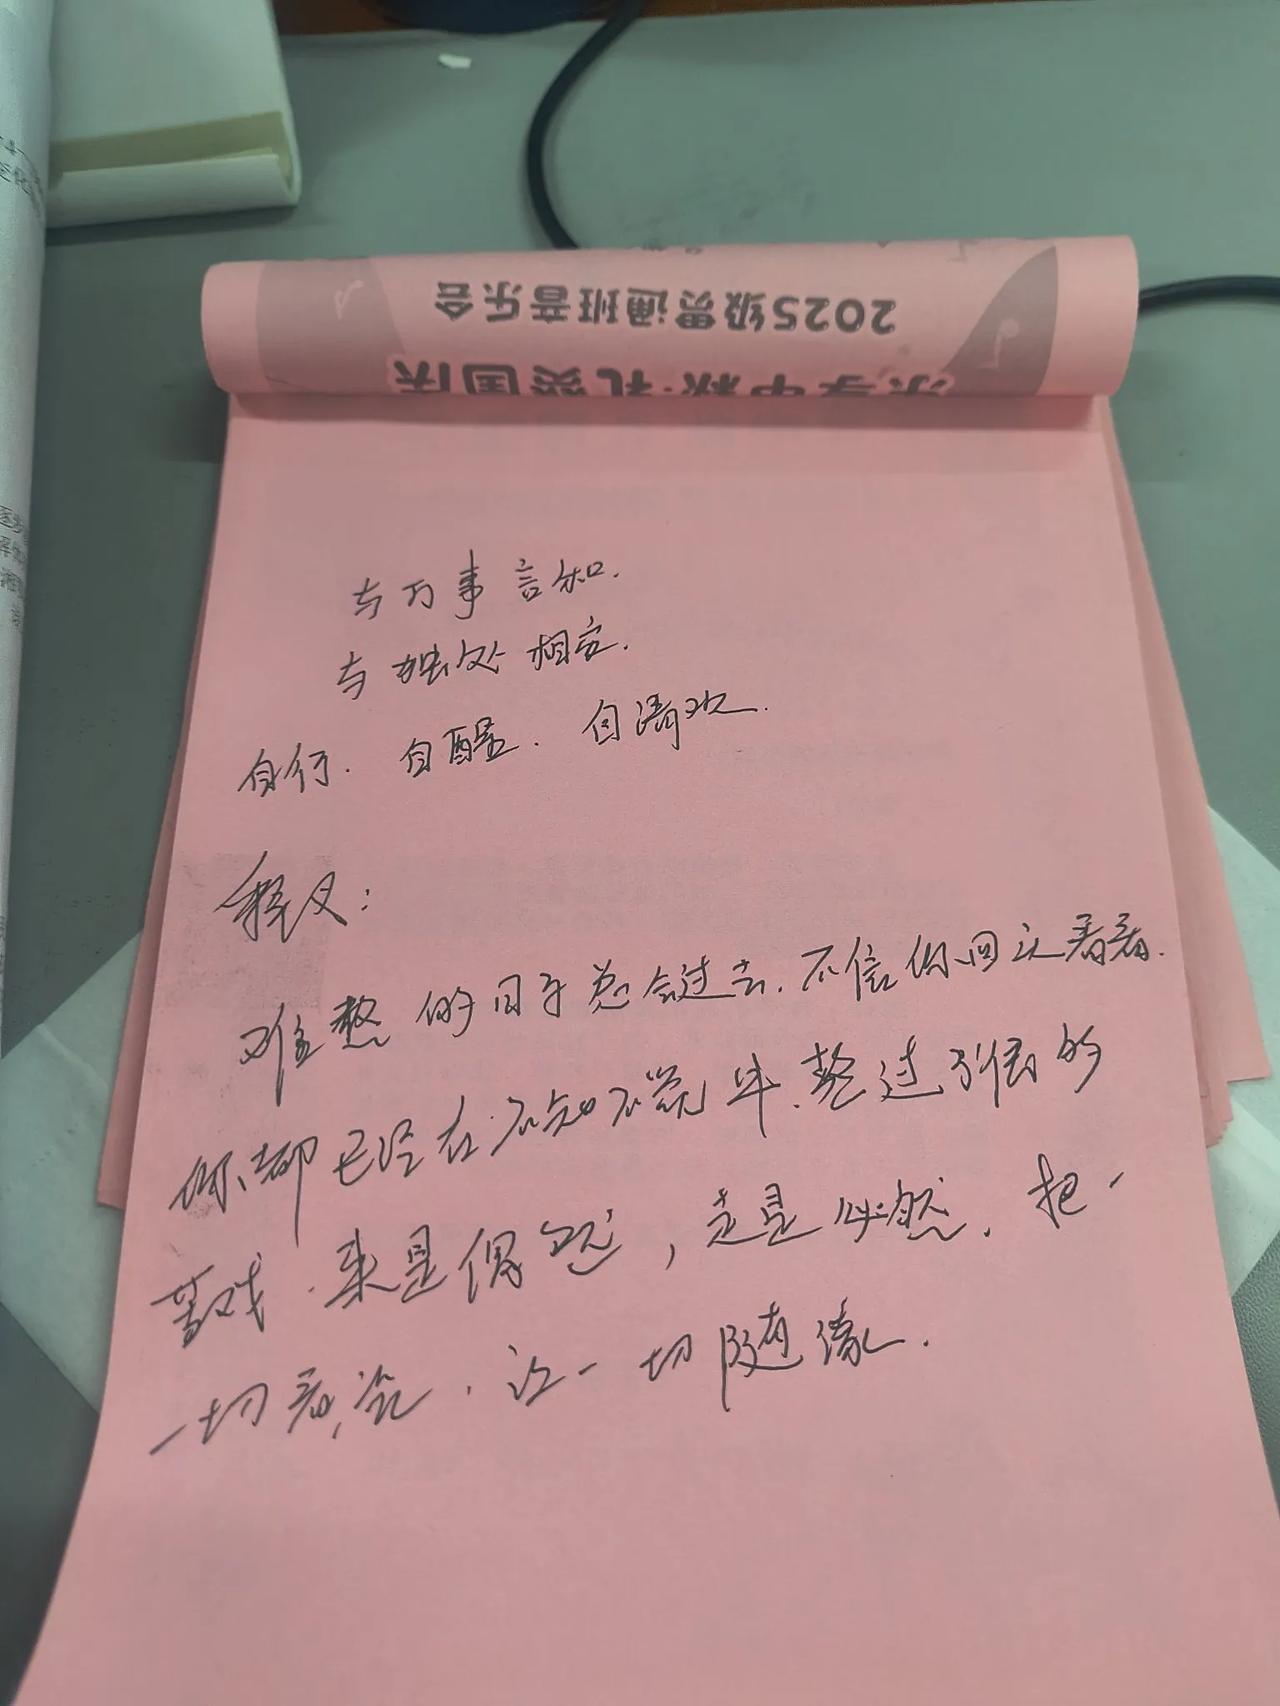 2025级贯通班音乐会
乐享中秋·礼赞国庆
与万事言和.
与独处相安.
自行. 自醒. 自清欢.
释义:
难熬的日子总会过去. 不信你回头看看.
你都已经在不知不觉中. 熬过了很的
苦戏. 来是偶然, 走是必然. 把一
一切看淡. 让一切随缘.